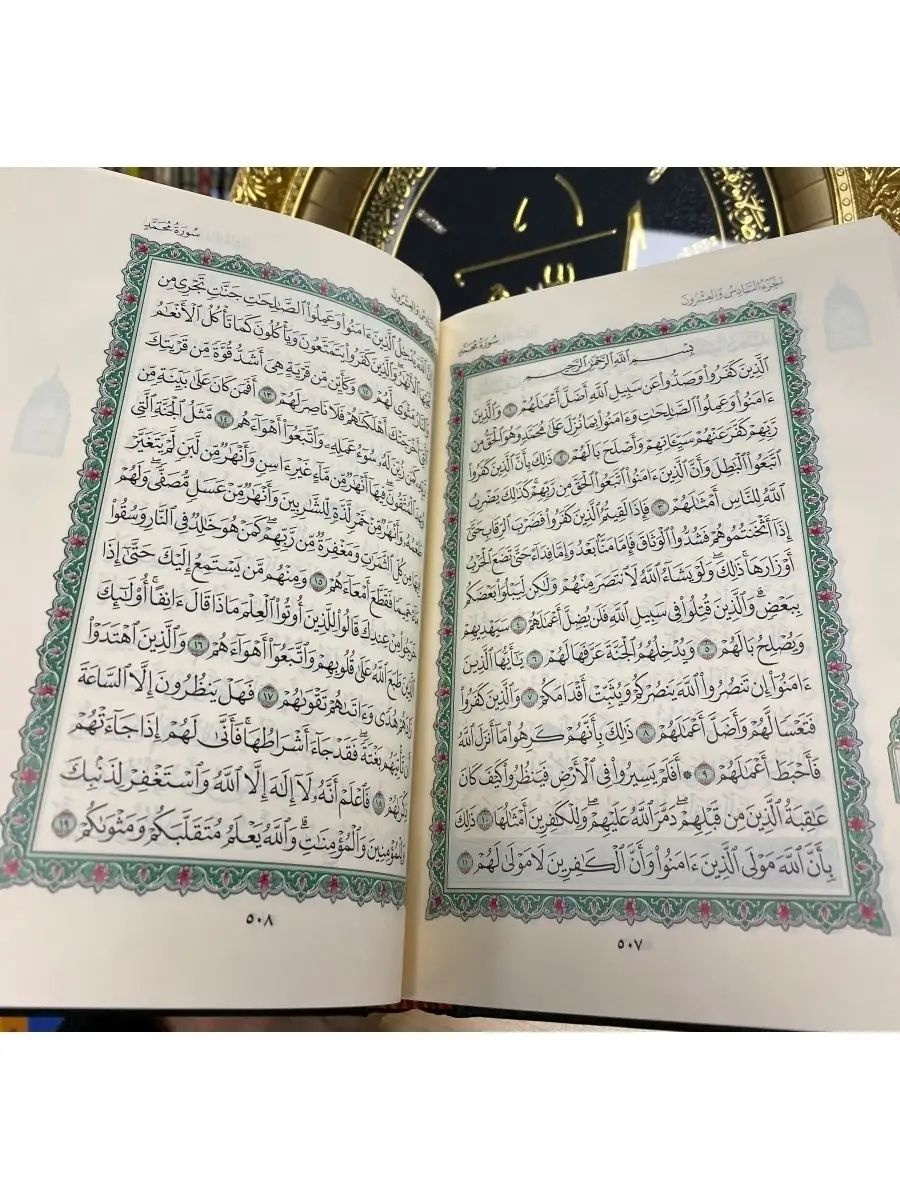 الجُزْءُ السَّادِسُ وَالعِشْرُونَ
سُورَةُ مُحَمَّد
بِسْمِ ٱللَّهِ ٱلرَّحْمَٰنِ ٱلرَّحِيمِ
ٱلَّذِينَ كَفَرُواْ وَصَدُّواْ عَن سَبِيلِ ٱللَّهِ أَضَلَّ أَعْمَٰلَهُمْ ١ وَٱلَّذِينَ
ءَامَنُواْ وَعَمِلُواْ ٱلصَّٰلِحَٰتِ وَءَامَنُواْ بِمَا نُزِّلَ عَلَىٰ مُحَمَّدٖ وَهُوَ ٱلْحَقُّ مِن
رَّبِّهِمْ كَفَّرَ عَنْهُمْ سَيِّـَٔاتِهِمْ وَأَصْلَحَ بَالَهُمْ ٢ ذَٰلِكَ بِأَنَّ ٱلَّذِينَ كَفَرُواْ
ٱتَّبَعُواْ ٱلْبَٰطِلَ وَأَنَّ ٱلَّذِينَ ءَامَنُواْ ٱتَّبَعُواْ ٱلْحَقَّ مِن رَّبِّهِمْ كَذَٰلِكَ يَضْرِبُ
ٱللَّهُ لِلنَّاسِ أَمْثَٰلَهُمْ ٣ فَإِذَا لَقِيتُمُ ٱلَّذِينَ كَفَرُواْ فَضَرْبَ ٱلرِّقَابِ حَتَّىٰٓ
إِذَآ أَثْخَنتُمُوهُمْ فَشُدُّواْ ٱلْوَثَاقَ فَإِمَّا مَنَّۢا بَعْدُ وَإِمَّا فِدَآءً حَتَّىٰ تَضَعَ ٱلْحَرْبُ
أَوْزَارَهَا ذَٰلِكَ وَلَوْ يَشَآءُ ٱللَّهُ لَٱنتَصَرَ مِنْهُمْ وَلَٰكِن لِّيَبْلُوَاْ بَعْضَكُم
بِبَعْضٖ وَٱلَّذِينَ قُتِلُواْ فِي سَبِيلِ ٱللَّهِ فَلَن يُضِلَّ أَعْمَٰلَهُمْ ٤ سَيَهْدِيهِمْ
وَيُصْلِحُ بَالَهُمْ ٥ وَيُدْخِلُهُمُ ٱلْجَنَّةَ عَرَّفَهَا لَهُمْ ٦ يَٰٓأَيُّهَا ٱلَّذِينَ
ءَامَنُوٓاْ إِن تَنصُرُواْ ٱللَّهَ يَنصُرْكُمْ وَيُثَبِّتْ أَقْدَامَكُمْ ٧ وَٱلَّذِينَ كَفَرُواْ
فَتَعْسٗا لَّهُمْ وَأَضَلَّ أَعْمَٰلَهُمْ ٨ ذَٰلِكَ بِأَنَّهُمْ كَرِهُواْ مَآ أَنزَلَ ٱللَّهُ
فَأَحْبَطَ أَعْمَٰلَهُمْ ٩ ۞ أَفَلَمْ يَسِيرُواْ فِي ٱلْأَرْضِ فَيَنظُرُواْ كَيْفَ كَانَ
عَٰقِبَةُ ٱلَّذِينَ مِن قَبْلِهِمْ دَمَّرَ ٱللَّهُ عَلَيْهِمْ وَلِلْكَٰفِرِينَ أَمْثَٰلُهَا ١٠ ذَٰلِكَ
بِأَنَّ ٱللَّهَ مَوْلَى ٱلَّذِينَ ءَامَنُواْ وَأَنَّ ٱلْكَٰفِرِينَ لَا مَوْلَىٰ لَهُمْ ١١
٥٠٧
سُورَةُ مُحَمَّد
يُدْخِلُ ٱلَّذِينَ ءَامَنُواْ وَعَمِلُواْ ٱلصَّٰلِحَٰتِ جَنَّٰتٖ تَجْرِي مِن
ٱلْأَنْهَٰرُ وَٱلَّذِينَ كَفَرُواْ يَتَمَتَّعُونَ وَيَأْكُلُونَ كَمَا تَأْكُلُ ٱلْأَنْعَٰمُ
مَثْوٗى لَّهُمْ ١٢ وَكَأَيِّن مِّن قَرْيَةٍ هِيَ أَشَدُّ قُوَّةٗ مِّن قَرْيَتِكَ
أَخْرَجَتْكَ أَهْلَكْنَٰهُمْ فَلَا نَاصِرَ لَهُمْ ١٣ أَفَمَن كَانَ عَلَىٰ بَيِّنَةٖ مِّن
زُيِّنَ لَهُۥ سُوٓءُ عَمَلِهِۦ وَٱتَّبَعُوٓاْ أَهْوَآءَهُم ١٤ مَّثَلُ ٱلْجَنَّةِ ٱلَّتِي
ٱلْمُتَّقُونَ فِيهَآ أَنْهَٰرٞ مِّن مَّآءٍ غَيْرِ ءَاسِنٖ وَأَنْهَٰرٞ مِّن لَّبَنٖ لَّمْ يَتَغَيَّرْ
وَأَنْهَٰرٞ مِّنْ خَمْرٖ لَّذَّةٖ لِّلشَّٰرِبِينَ وَأَنْهَٰرٞ مِّنْ عَسَلٖ مُّصَفّٗى وَلَهُمْ
مِن كُلِّ ٱلثَّمَرَٰتِ وَمَغْفِرَةٞ مِّن رَّبِّهِمْ كَمَنْ هُوَ خَٰلِدٞ فِي ٱلنَّارِ وَسُقُواْ
فَقَطَّعَ أَمْعَآءَهُمْ ١٥ وَمِنْهُم مَّن يَسْتَمِعُ إِلَيْكَ حَتَّىٰٓ إِذَا
مِنْ عِندِكَ قَالُواْ لِلَّذِينَ أُوتُواْ ٱلْعِلْمَ مَاذَا قَالَ ءَانِفًا أُوْلَٰٓئِكَ
طَبَعَ ٱللَّهُ عَلَىٰ قُلُوبِهِمْ وَٱتَّبَعُوٓاْ أَهْوَآءَهُمْ ١٦ وَٱلَّذِينَ ٱهْتَدَوْاْ
هُدٗى وَءَاتَىٰهُمْ تَقْوَىٰهُمْ ١٧ فَهَلْ يَنظُرُونَ إِلَّا ٱلسَّاعَةَ
أَن تَأْتِيَهُم بَغْتَةٗ فَقَدْ جَآءَ أَشْرَاطُهَا فَأَنَّىٰ لَهُمْ إِذَا جَآءَتْهُمْ
١٨ فَٱعْلَمْ أَنَّهُۥ لَآ إِلَٰهَ إِلَّا ٱللَّهُ وَٱسْتَغْفِرْ لِذَنۢبِكَ
وَلِلْمُؤْمِنِينَ وَٱلْمُؤْمِنَٰتِ وَٱللَّهُ يَعْلَمُ مُتَقَلَّبَكُمْ وَمَثْوَىٰكُمْ ١٩
٥٠٨